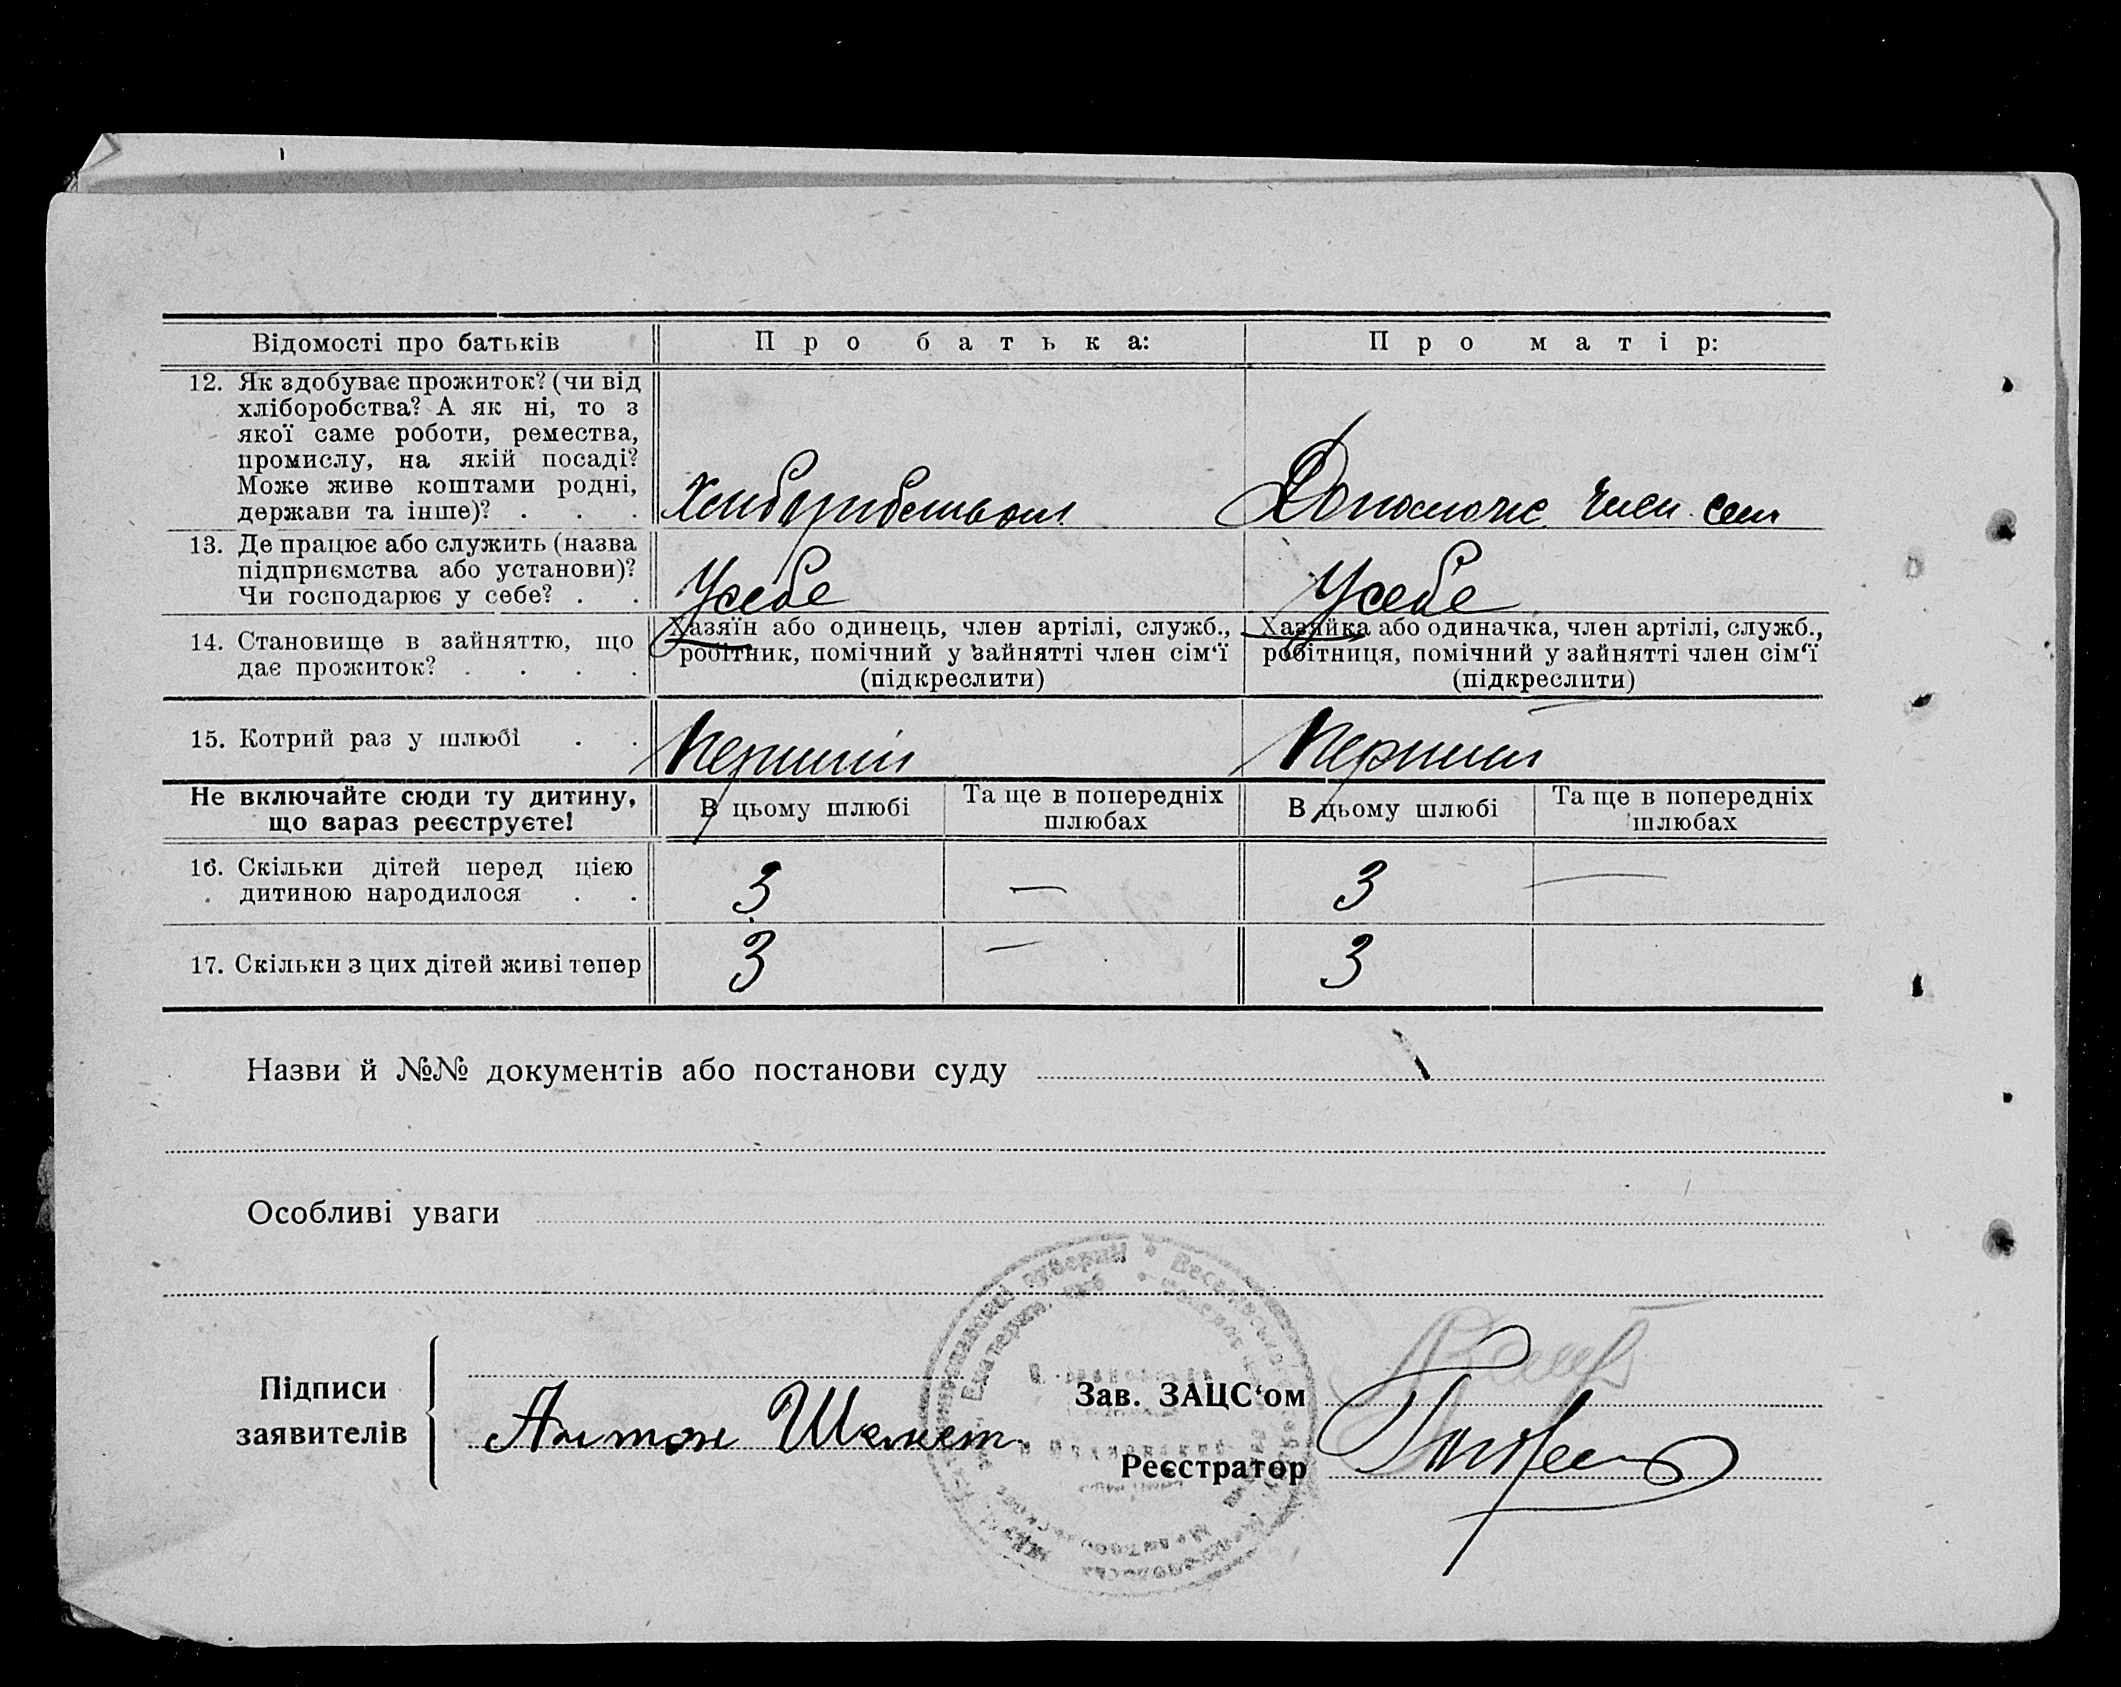 Відомості про батьків
Про батька:
Про матір:
12. Як здобуває прожиток? (чи від
хліборобства? А як ні, то з
якої саме роботи, ремества,
промислу, на якій посаді?
Може живе коштами родні,
держави та інше)? . . .
Хлиборибством
Допоможе член сем
13. Де працює або служить (назва
підприємства або установи)?
Чи господарює у себе? . .
Усебе
Усебе
14. Становище в зайняттю, що
дає прожиток? . . . .
Хазяїн або одинець, член артілі, служб.,
робітник, помічний у зайнятті член сім‘ї
(підкреслити)
Хазяйка або одиначка, член артілі, служб.,
робітниця, помічний у зайнятті член сім‘ї
(підкреслити)
15. Котрий раз у шлюбі . .
Перший
Перший
Не включайте сюди ту дитину,
що зараз реєструєте!
В цьому шлюбі
Та ще в попередніх
шлюбах
В цьому шлюбі
Та ще в попередніх
шлюбах
16. Скільки дітей перед цією
дитиною народилося . .
3 — 3 —
17. Скільки з цих дітей живі тепер
3 — 3
Назви й №№ документів або постанови суду
Особливі уваги
губернії
Підписи
заявителів
Антон Шемет
Зав. ЗАЦС‘ом
Реєстратор